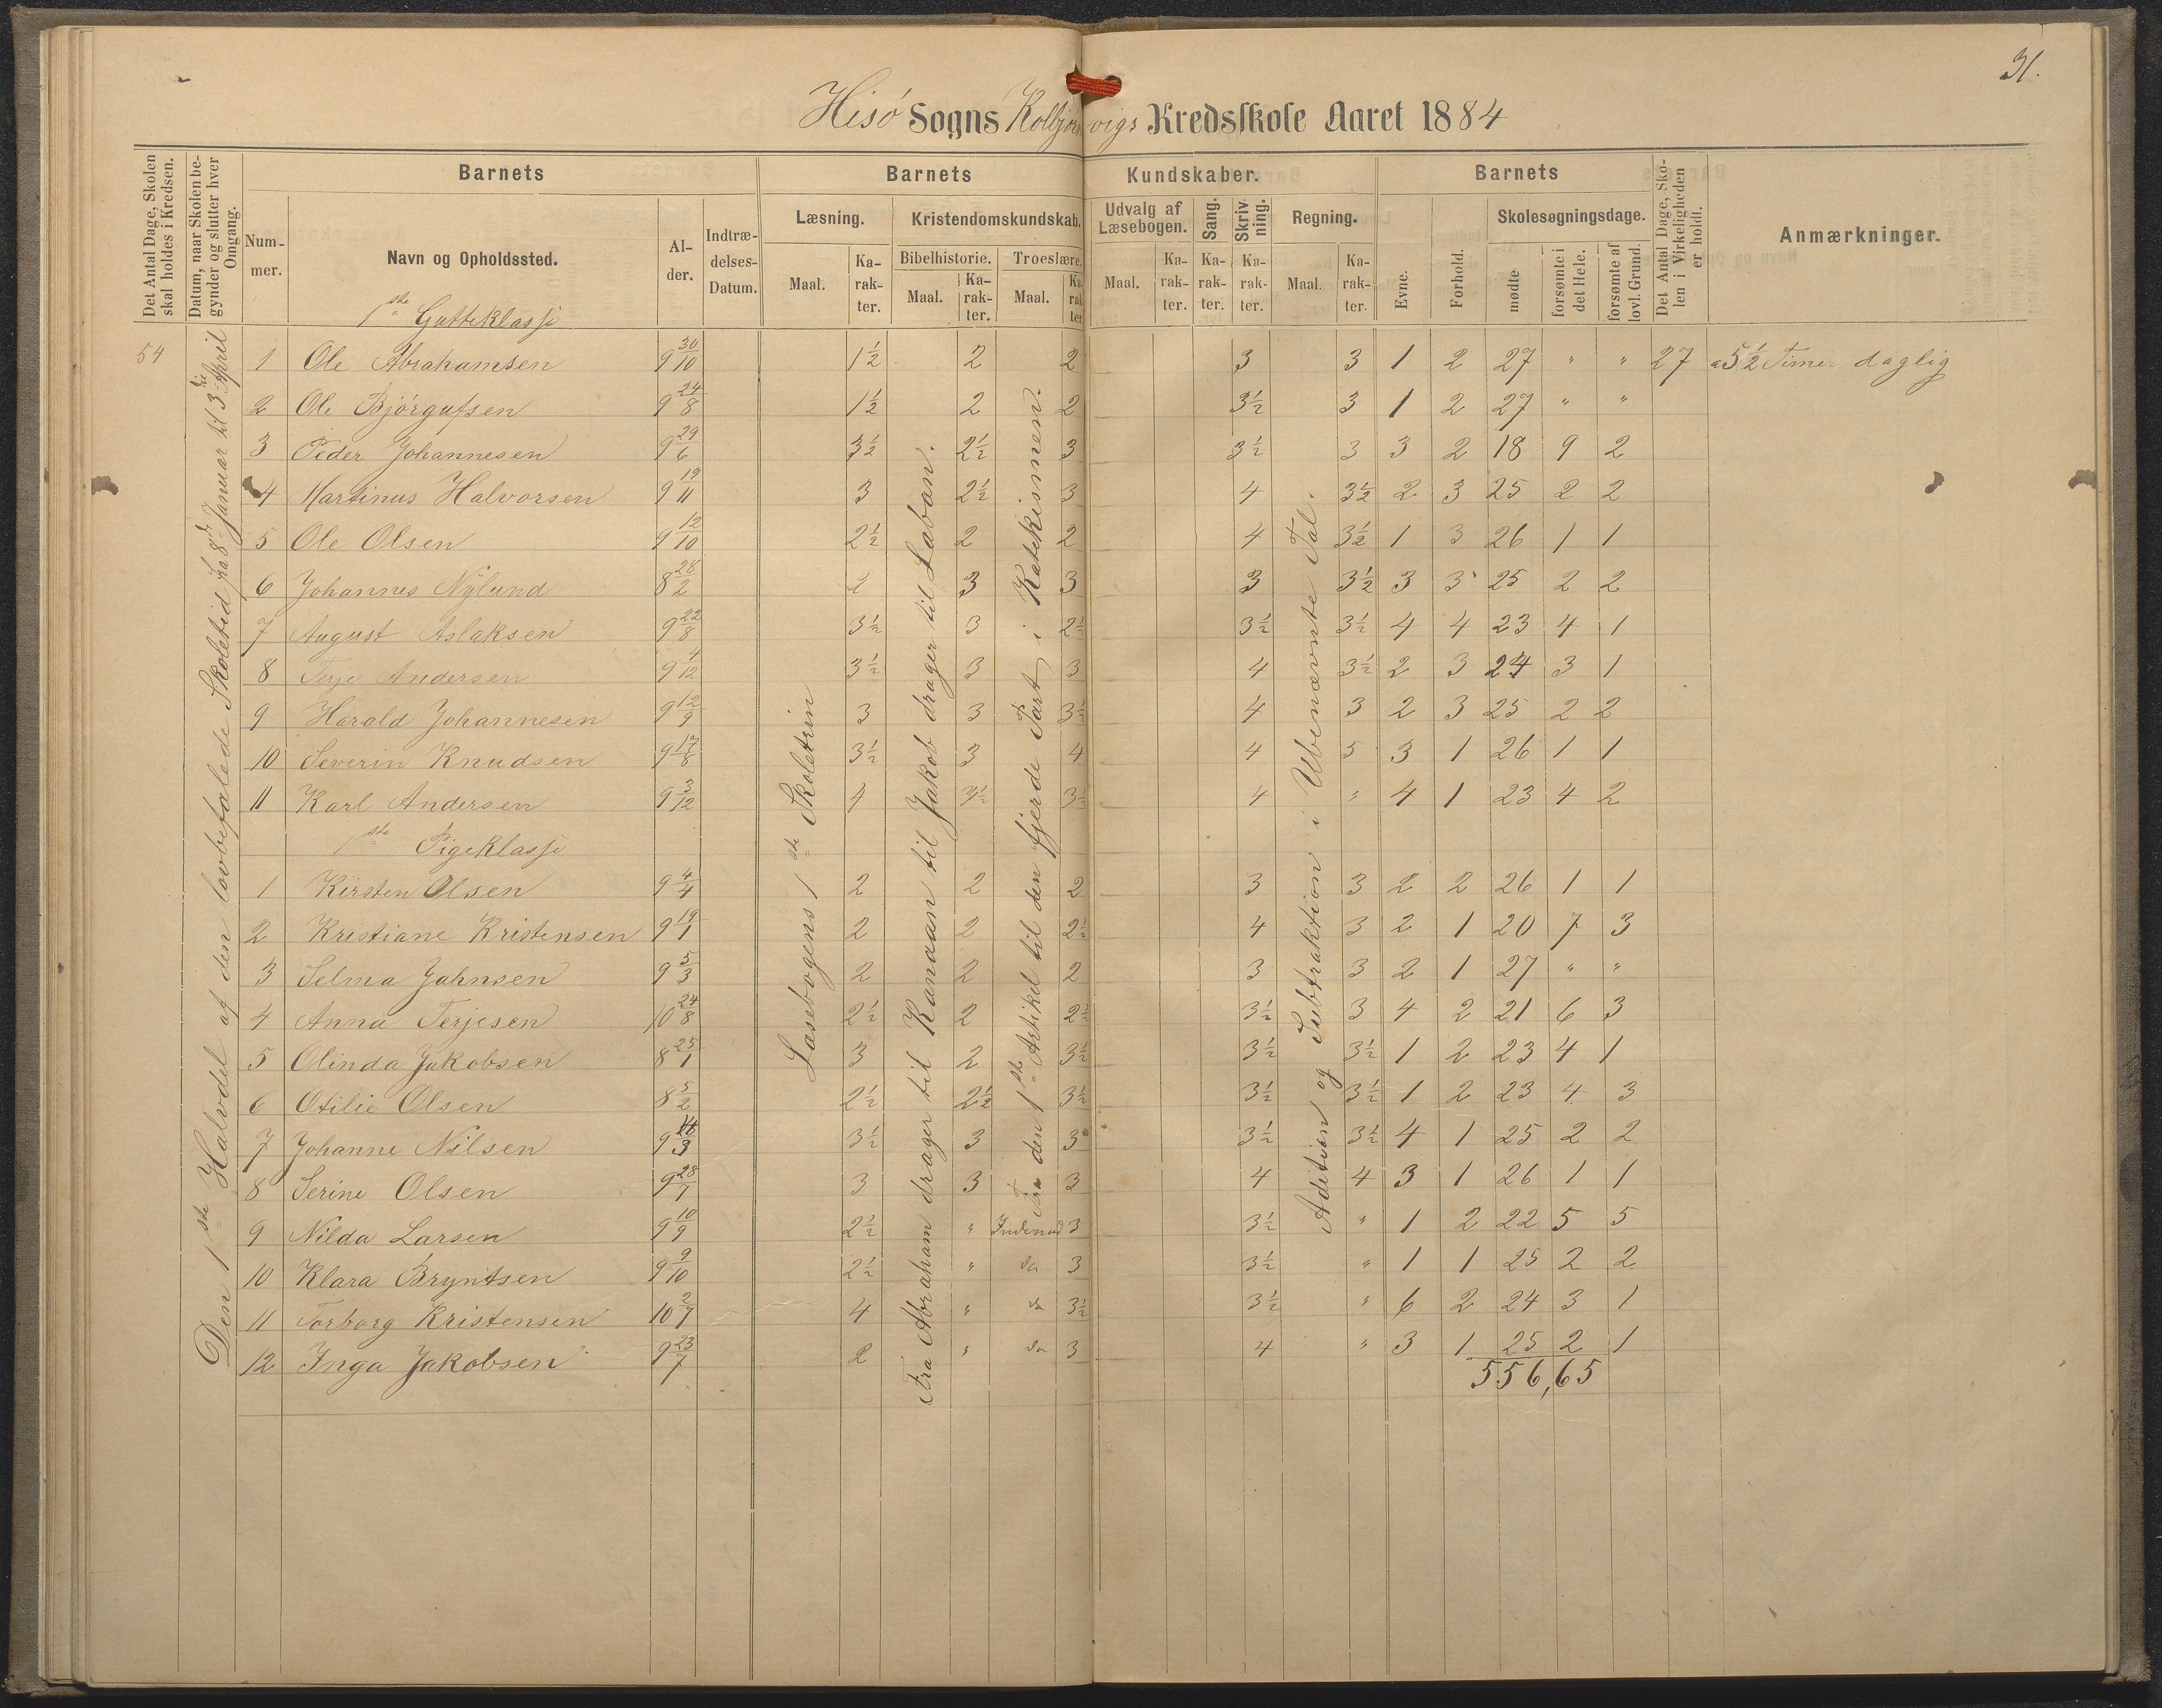 31.
Hisö Sogns Kolbjørnvigs Kredsskole Aaret 1884
Det Antal Dage, Skolen skal holdes i Kredsen.
Datum, naar Skolen begynder og slutter hver Omgang.
Barnets
Barnets
Kundskaber.
Barnets
Det Antal Dage, Skolen i Virkeligheden er holdt.
Anmærkninger.
Nummer.
Navn og Opholdssted.
Alder.
Indtrædelses-Datum.
Læsning.
Kristendomskundskab.
Udvalg af Læsebogen.
Sang.
Skrivning.
Regning.
Evne.
Forhold.
Skolesøgningsdage.
Bibelhistorie.
Troeslære.
Maal.
Karakter.
Maal.
Karakter.
Maal.
Karakter.
Maal.
Karakter.
Karakter.
Karakter.
Maal.
Karakter.
mødte
forsømte i det Hele.
forsømte af lovl. Grund.
1ste Gutteklasse
54 1 Ole Abrahamsen 9 30/10 1½ 2 2 3 3 1 2 27 " " 27 a 5½ Timer daglig
2 Ole Bjørgufsen 9 24/8 1½ 2 2 3½ 3 1 2 27 " "
3 Peder Johannesen 9 29/6 3½ 2½ 3 3½ 3 3 2 18 9 2
4 Martinus Halvorsen 9 19/11 3 2½ 3 4 3½ 2 3 25 2 2
5 Ole Olsen 9 12/10 2½ 2 2 4 3½ 1 3 26 1 1
6 Johannes Nylund 8 28/2 2 3 3 3 3½ 3 3 25 2 2
7 August Aslaksen 9 22/8 3½ 3 2½ 3½ 3½ 4 4 23 4 1
8 Terje Andersen 9 4/12 3½ 3 3 4 3½ 2 3 24 3 1
9 Harald Johannesen 9 12/9 3 3 3½ 4 3 2 3 25 2 2
10 Severin Knudsen 9 17/8 3½ 3 4 4 5 3 1 26 1 1
11 Karl Andersen 9 3/12 4 3½ 3½ 4 " 4 1 23 4 2
1ste Pigeklasse
1 Kirsten Olsen 9 4/4 2 2 2 3 3 2 2 26 1 1
2 Kristiane Kristensen 9 19/1 2 2 2½ 4 3 2 1 20 7 3
3 Selma Jahnsen 9 5/3 2 2 2 3 3 2 1 27 " "
4 Anna Terjesen 10 24/8 2½ 2 2½ 3½ 3 4 2 21 6 3
5 Olinda Jakobsen 8 25/1 3 2 3½ 3½ 3½ 1 2 23 4 1
6 Otilie Olsen 8 5/2 2½ 2½ 3½ 3½ 3½ 1 2 23 4 3
7 Johanne Nilsen 9 14/3 3½ 3 3 3½ 3½ 4 1 25 2 2
8 Serine Olsen 9 28/7 3 3 3 4 4 3 1 26 1 1
9 Nilda Larsen 9 10/9 2½ " 3 3½ " 1 2 22 5 5
10 Klara Bryntsen 9 9/10 2½ " do 3 3½ " 1 1 25 2 2
11 Torborg Kristensen 10 2/7 4 " do 3½ 3½ " 6 2 24 3 1
12 Inga Jakobsen 9 23/7 2 " do 3 4 " 3 1 25 2 1
556,65
Den 1ste Halvdel af den lovbefalede Skoletid fra 8de Januar til 3die April
Læsebogens 1ste Skoletrin
Fra Abraham drager til Kanaan til Jakob drager til Laban.
Fra den 1ste Artikel til den fjerde Part i Katekismen.
Adition og Subtraktion i Ubenævnte Tal.